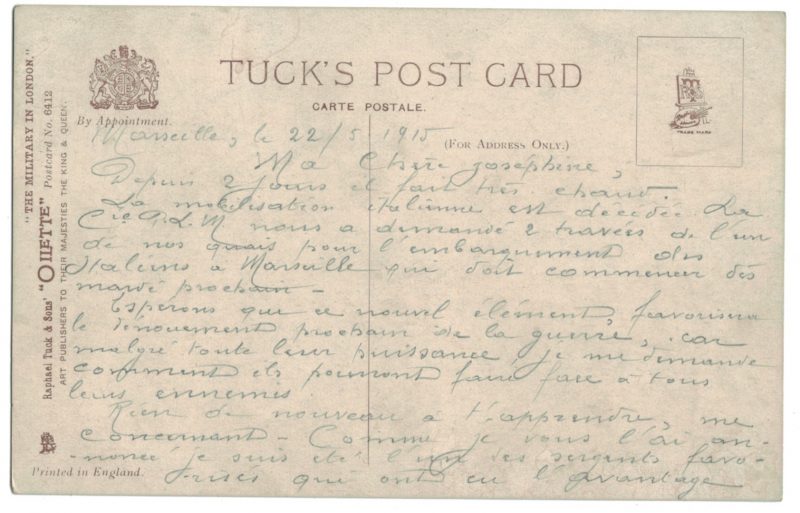 TUCK'S POST CARD
CARTE POSTALE.
By Appointment.
(FOR ADDRESS ONLY.)
TRADE MARK
"THE MILITARY IN LONDON,"
Raphael Tuck & Sons' "OILETTE" Postcard No. 6412
ART PUBLISHERS TO THEIR MAJESTIES THE KING & QUEEN.
Printed in England.
Marseille, le 22/5 1915
Ma Chère Joséphine,
Depuis 2 jours il fait très chaud.
La mobilisation italienne est décidée. La
Cie P.L.M nous a demandé 2 travées de l'un
de nos quais pour l'embarquement des
Italiens à Marseille qui doit commencer dès
mardi prochain -
Espérons que ce nouvel élément, favorisera
le dénouement prochain de la guerre, car
malgré toute leur puissance, je me demande
comment ils pourront faire face à tous
leurs ennemis
Rien de nouveau à t'apprendre, me
concernant - Comme je vous l'ai an-
-noncé je suis été l'un des sergents favo-
-risés qui ont eu l'avantage